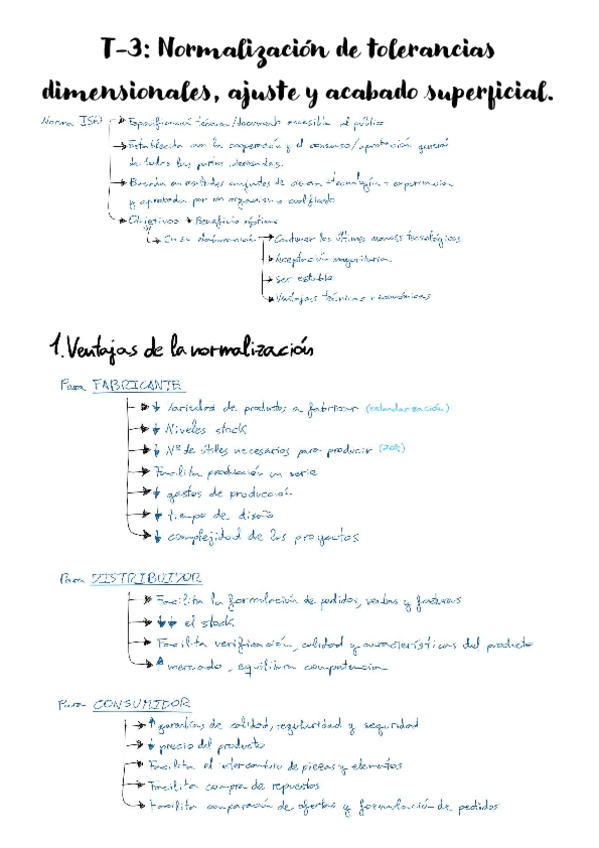 T-3: Normalización de tolerancias
dimensionales, ajuste y acabado superficial.
Norma ISO → Especificación técnica/documento accesible al público
→ Establecida con la cooperación y el consenso/aprobación general
de todas las partes interesadas.
→ Basada en resultados conjuntos de ciencia - tecnología - experiencia
y aprobada por un organismo cualificado
→ Objetivos → Beneficio óptimo
→ En su elaboración → Contener los últimos avances tecnológicos
→ Aceptación mayoritaria
→ ser estable
→ Ventajas técnicas - económicas
1. Ventajas de la normalización
Para FABRICANTE
→ ↓ Variedad de productos a fabricar (estandarización)
→ ↓ Niveles stock
→ ↓ Nº de útiles necesarios para producir
→ Facilita producción en serie
→ ↓ gastos de producción
→ ↓ tiempo de diseño
→ ↓ complejidad de los proyectos
Para DISTRIBUIDOR
→ Facilita la formulación de pedidos, ventas y facturas
→ ↓↓ el stock
→ Facilita verificación, calidad y características del producto
→ ↑ mercado, equilibra competencia
Para CONSUMIDOR
→ ↑ garantías de calidad, regularidad y seguridad
→ ↓ precio del producto
→ Facilita el intercambio de piezas y elementos
→ Facilita compra de repuestos
→ Facilita comparación de ofertas y formulación de pedidos